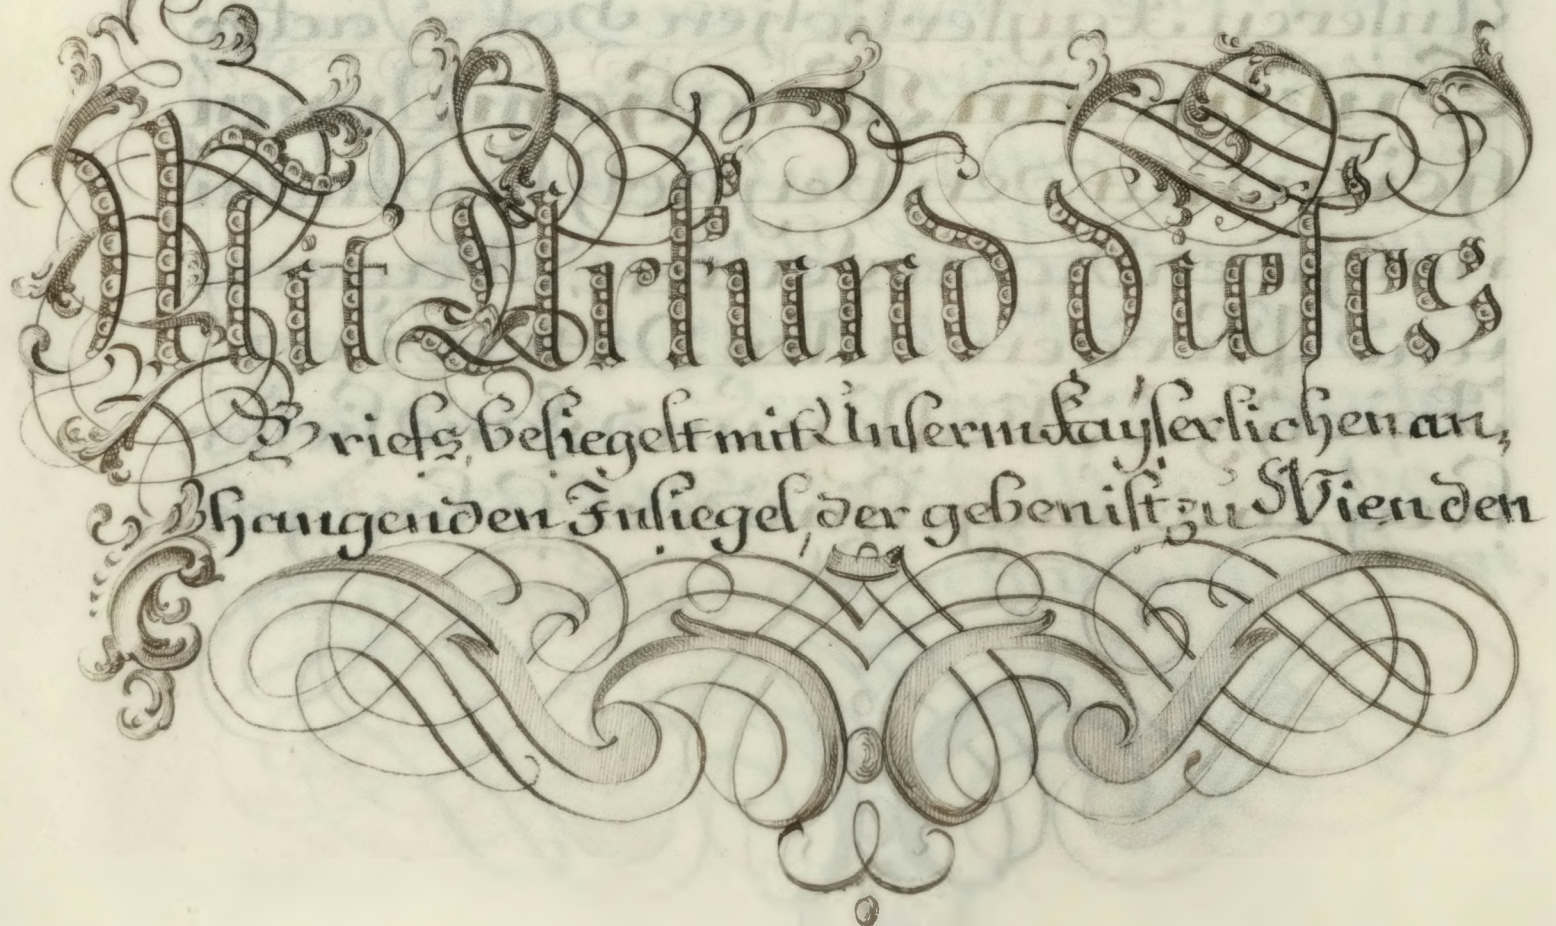 Mit Urkund dieses
Briefs, besiegelt mit Unserm kayserlichen an,
hangenden Insiegel, der geben ist zu Wien den